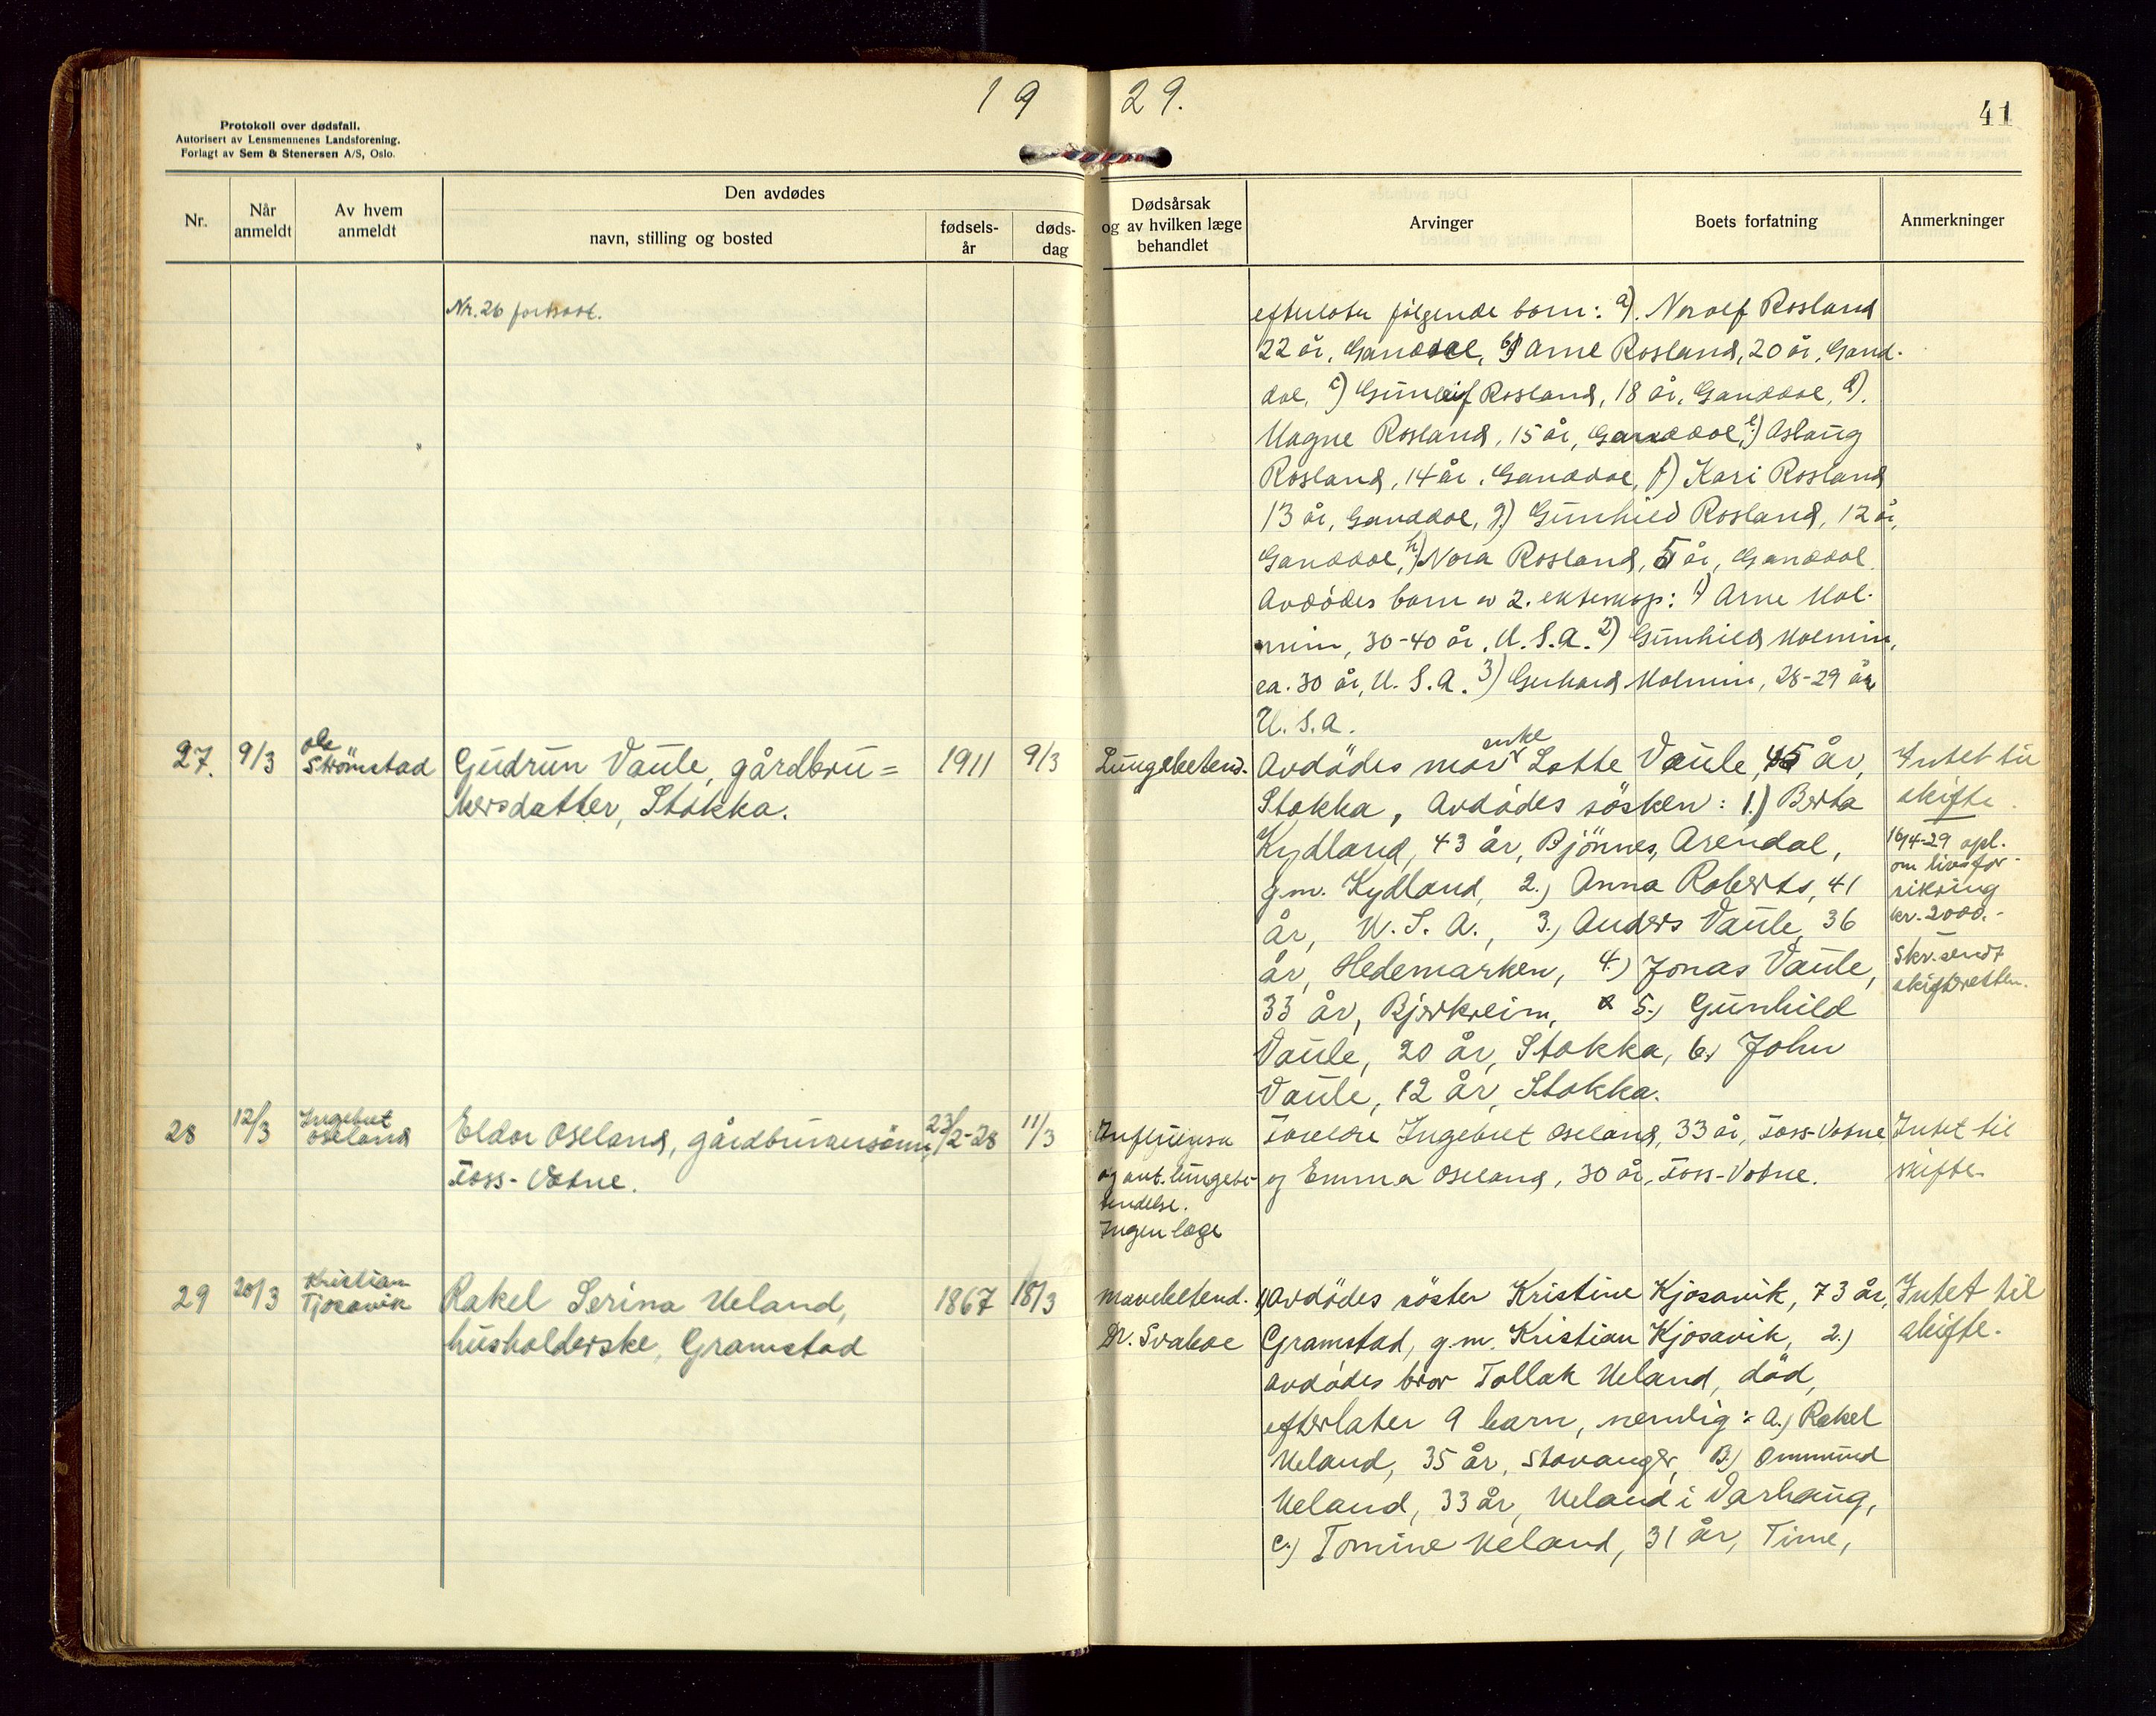 19 29.
41
Protokoll over dødsfall.
Autorisert av Lensmennenes Landsforening.
Forlagt av Sem & Stenersen A/S, Oslo.
Nr.
Når anmeldt
Av hvem anmeldt
Den avdødes
navn, stilling og bosted
fødsels-år
døds-dag
Dødsårsak og av hvilken læge behandlet
Arvinger
Boets forfatning
Anmerkninger
Nr. 26 fortsatt.
efterlater følgende barn: a). Norolf Rosland
22 år, Ganddal, b) Arne Rosland, 20 år, Gand-
dal, c) Gunleif Rosland, 18 år, Ganddal, d).
Magne Rosland, 15 år, Ganddal, e.) Aslaug
Rosland, 14 år, Ganddal, f) Kari Rosland
13 år, Ganddal, g.) Gunhild Rosland, 12 år,
Ganddal, h.) Nora Rosland, 5 år, Ganddal.
Avdödes barn av 2. ekteskap: 1) Arne Mal-
min, 30-40 år, U.S.A. 2) Gunhild Malmin,
ca. 30 år, U.S.A. 3) Gerhard Malmin, 28-29 år,
U.S.A.
27. 9/3
Ole
Strömstad
Gudrun Vaule, gårdbru=
kersdatter, Stokka.
1911
9/3
Lungebetend.
enke
Avdödes mor Lotte Vaule, 45 år,
Stokka, Avdödes sösken: 1.) Berta
Kydland, 43 år, Bjönnes, Arendal,
g.m. Kydland, 2.) Anna Roberts, 41
år, U.S.A., 3.) Anders Vaule, 36
år, Hedemarken, 4.) Jonas Vaule,
33 år, Bjerkreim, & 5.) Gunhild
Vaule, 20 år, Stokka, 6.) John
Vaule, 12 år, Stokka.
Intet til
skifte.
16/4-29 opl.
om livsfor-
sikring
kr. 2000.-
Skr. sendt
skifteretten.
28
12/3
Ingebret
Oseland
Eldor Oseland, gårdbrukersönn,
Foss-Vatne.
23/2-28
11/3
Influensa
og ant. lungebe-
tendelse.
Ingen læge
Foreldre Ingebret Oseland, 33 år, Foss-Vatne
og Emma Oseland, 30 år, Foss-Vatne.
Intet til
skifte.
29
20/3
Kristian
Kjosavik
Rakel Serina Ueland,
husholderske, Gramstad
1867
18/3
Mavebetend.
Dr. Svaboe
1) Avdödes söster Kristine Kjosavik, 73 år,
Gramstad, g.m. Kristian Kjosavik, 2.)
avdödes bror Tollak Ueland, död,
efterlater 9 barn, nemlig: A.) Rakel
Ueland, 35 år, Stavanger, B.) Ommund
Ueland, 33 år, Ueland i Varhaug,
C.) Tomine Ueland, 31 år, Time,
Intet til
skifte.